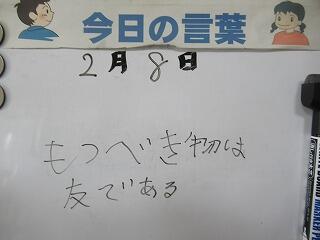 今日の言葉
2月8日
もつべき物は
友である